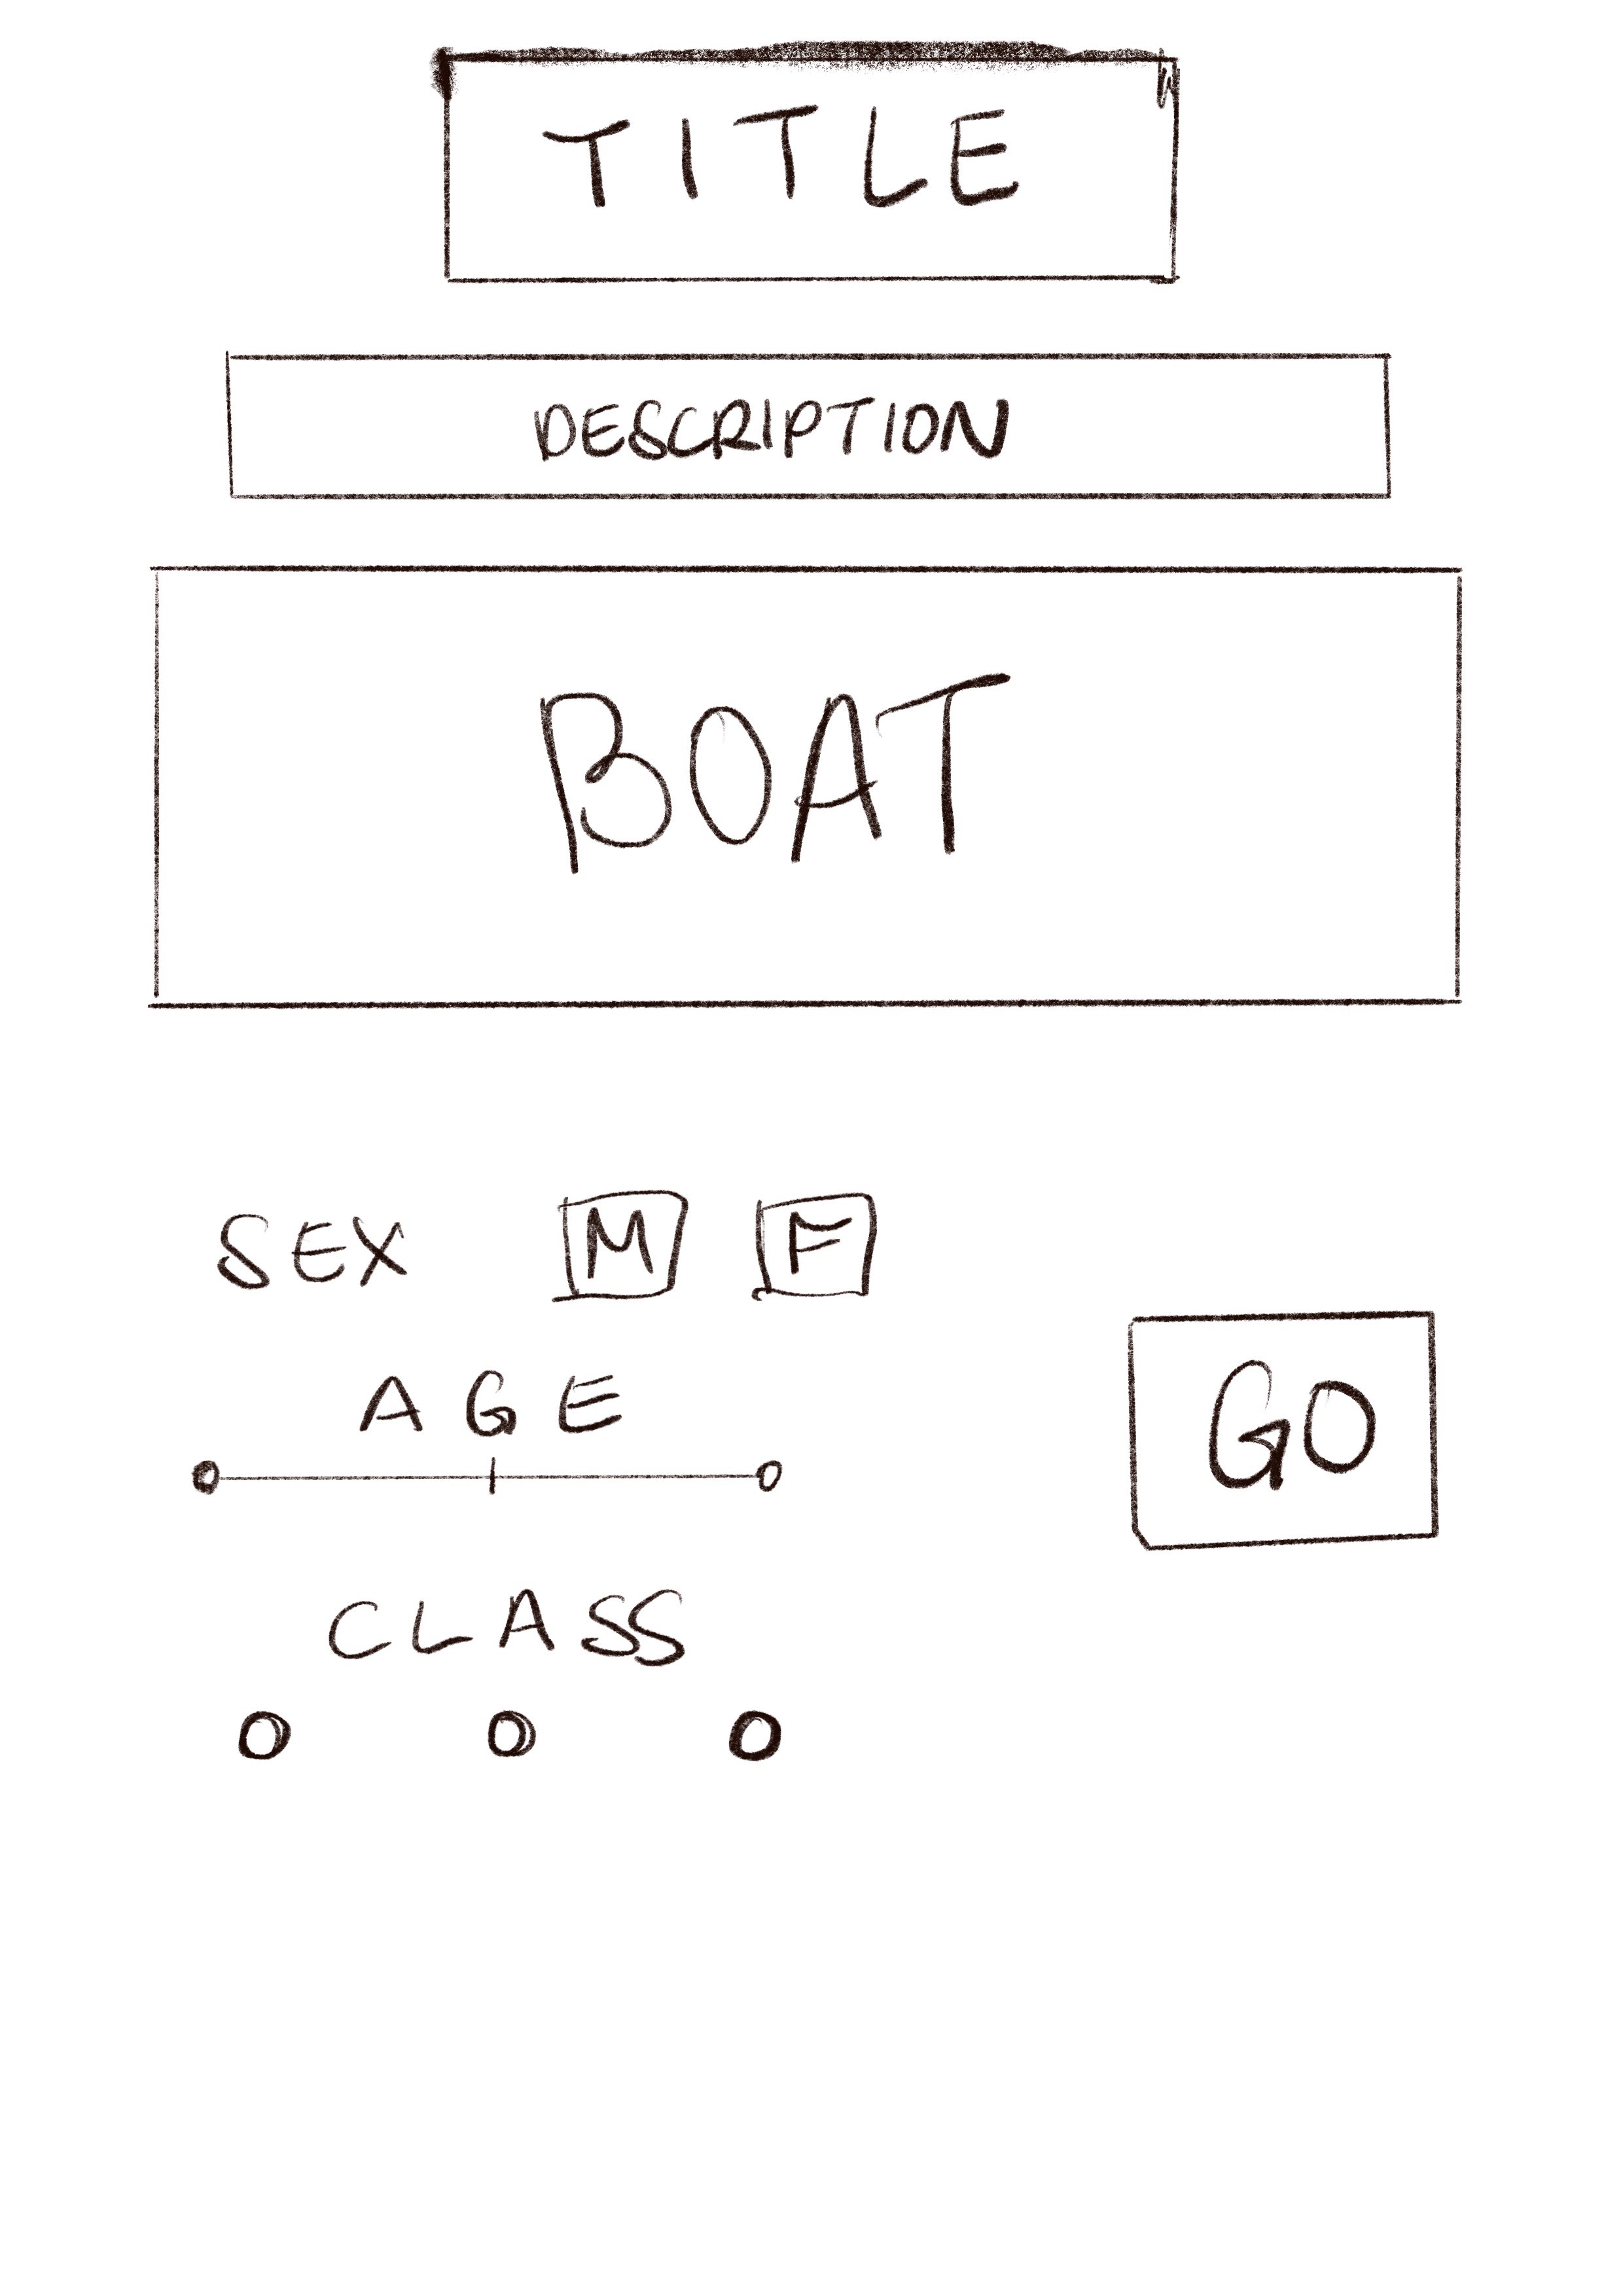 TITLE
DESCRIPTION
BOAT
SEX M F
AGE
GO
CLASS